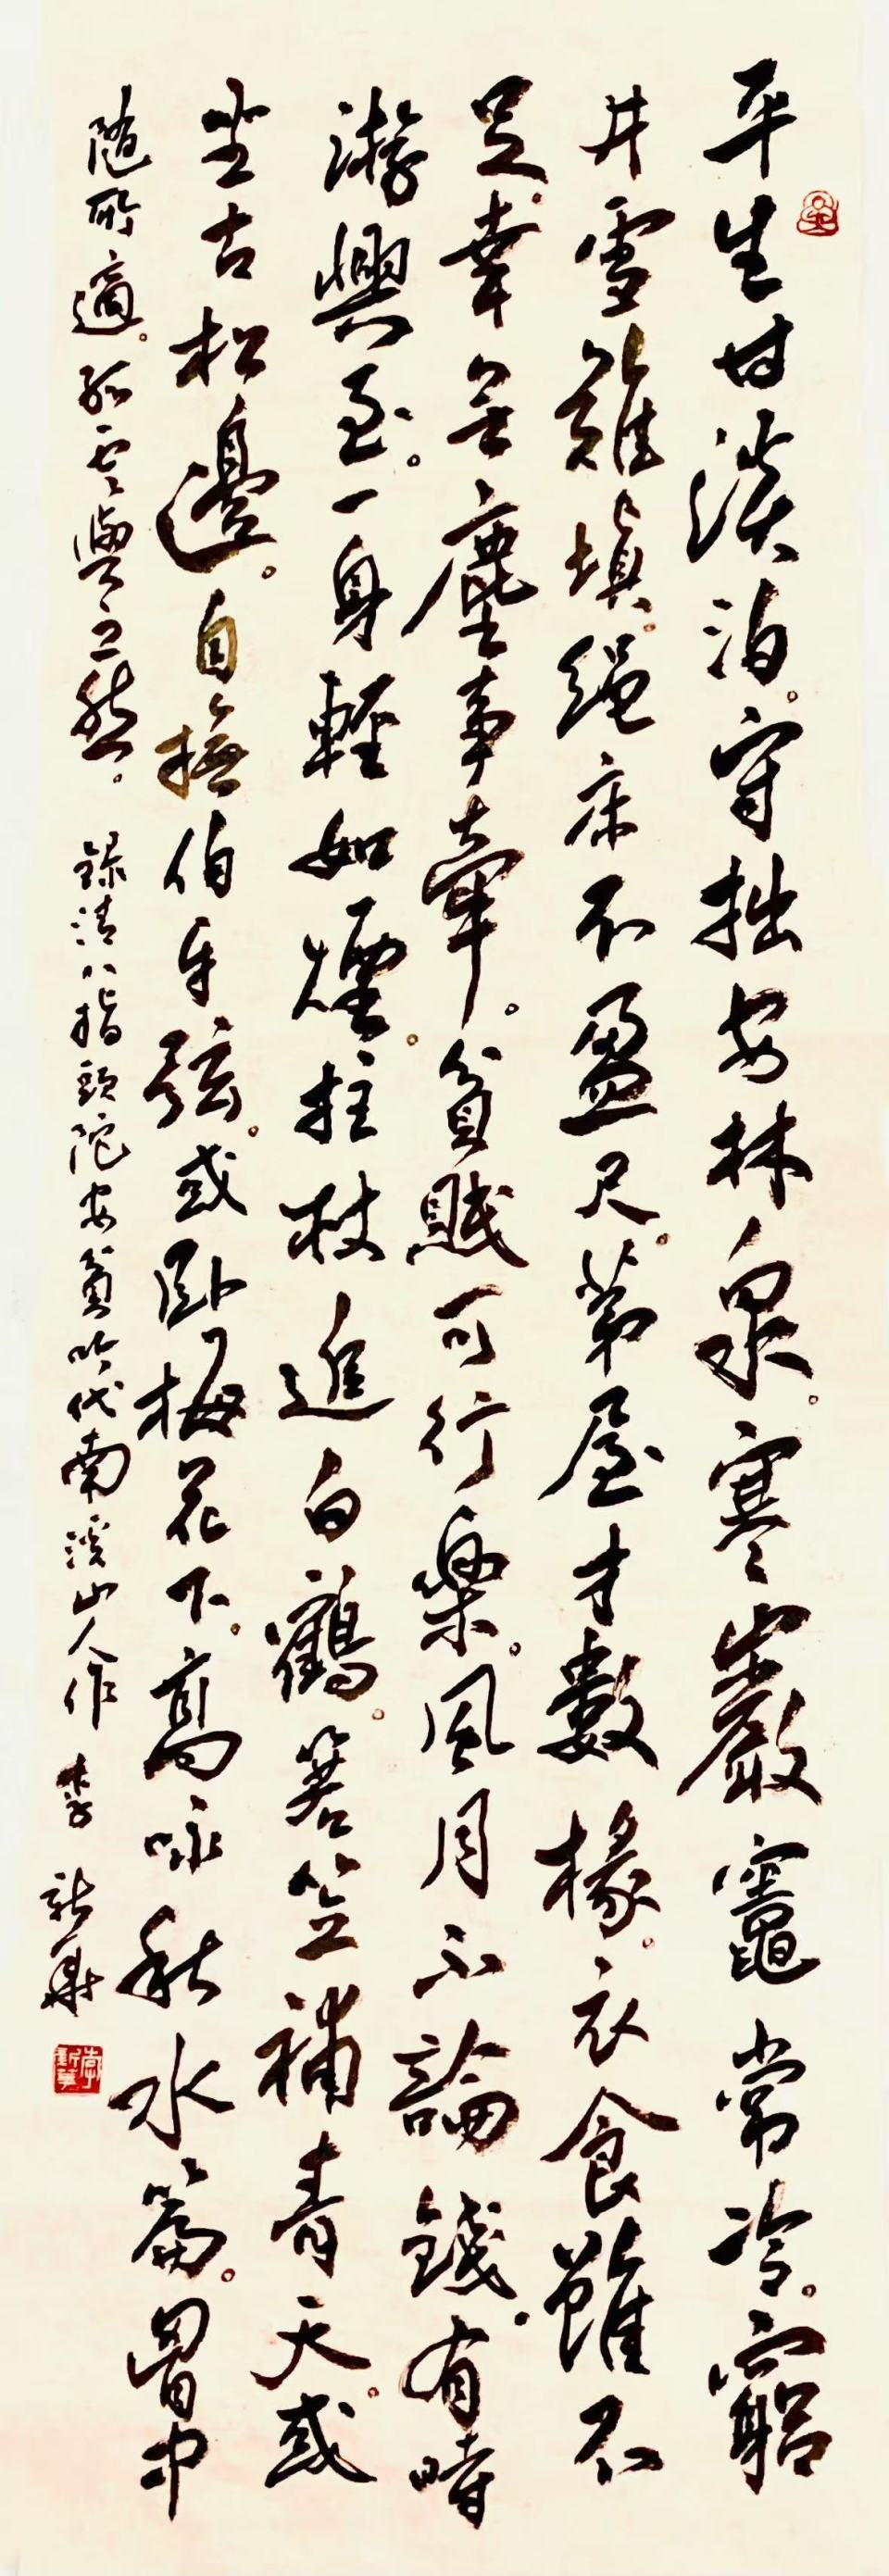 平生甘淡泊。守拙安林泉。寒巖竈常冷。窮
井雪難填。绳床不盈尺。茅屋才數椽。衣食雖不
足。幸無塵事牽。貧賤可行樂。風月不論錢。有時
游興至。一身輕如煙。拄杖進白鶴。箬笠補青天。或
坐古松邊。自撫伯牙弦。或臥梅花下。高咏秋水篇。胃中
随所適。孤雲與之然。録清八指頭陀安貧吟代南溪山人作 李新華
李新華